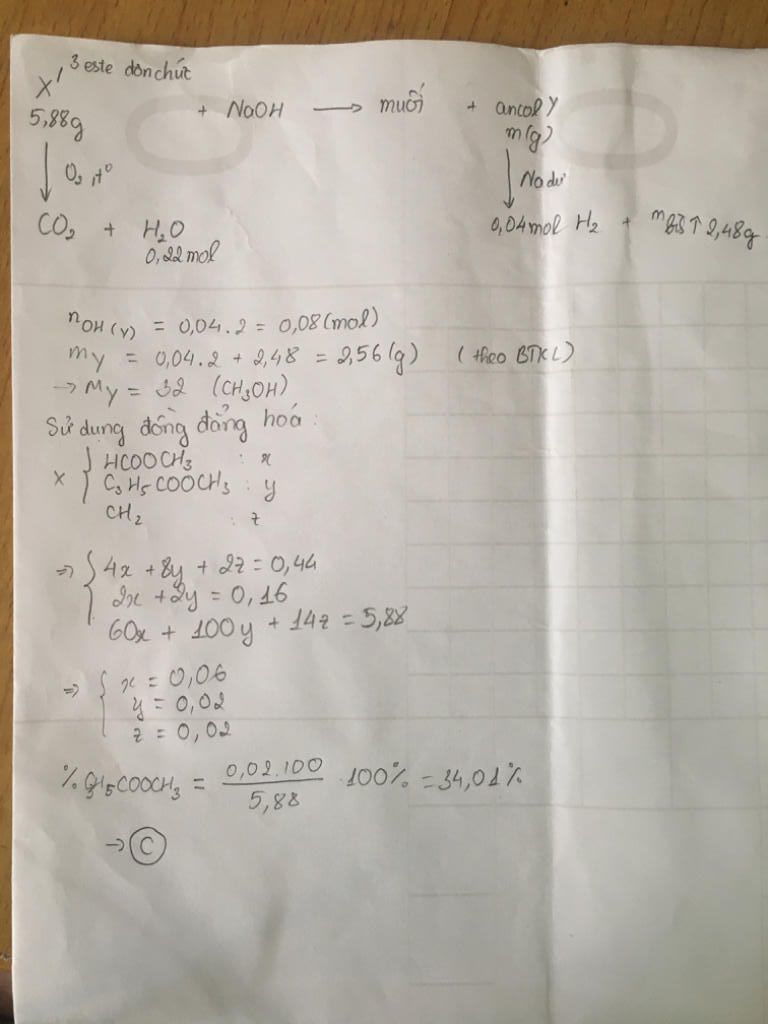 X / 3 este đơn chức
5,88g + NaOH → muối + ancol Y
m(g)
↓ O₂, t° ↓ Na dư
CO₂ + H₂O 0,04mol H₂ + m bđ ↑ 2,48g
0,22mol
nOH(Y) = 0,04.2 = 0,08(mol)
mY = 0,04.2 + 2,48 = 2,56(g) (theo BTKL)
→ MY = 32 (CH₃OH)
Sử dụng đồng đẳng hoá:
X { HCOOCH₃ : x
C₃H₅COOCH₃ : y
CH₂ : z
⇒ { 4x + 8y + 2z = 0,44
2x + 2y = 0,16
60x + 100y + 14z = 5,88
⇒ { x = 0,06
y = 0,02
z = 0,02
% C₃H₅COOCH₃ = 0,02.100 / 5,88 . 100% = 34,01%
→ C